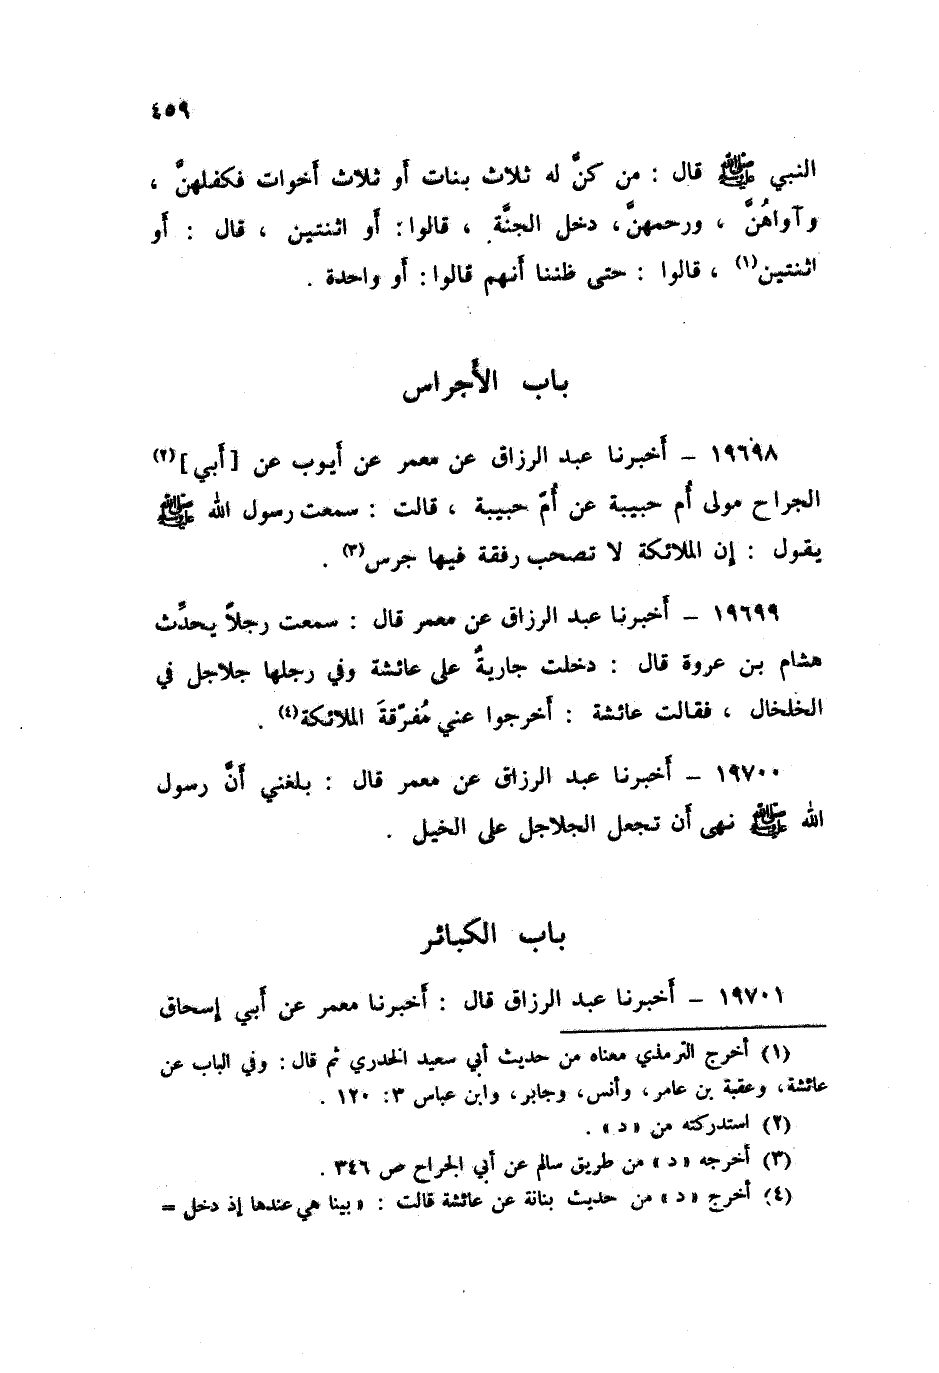 ٤٥٩
النبي ﷺ قال : من كنَّ له ثلاث بنات أو ثلاث أخوات فكفلهنَّ ،
وآواهُنَّ ، ورحمهنَّ، دخل الجنَّة ، قالوا: أو اثنتين ، قال : أو
اثنتين(١) ، قالوا : حتى ظننا أنهم قالوا: أو واحدة .
باب الأجراس
١٩٦٩٨ – أخبرنا عبد الرزاق عن معمر عن أيوب عن [أبي](٢)
الجراح مولى أم حبيبة عن أُمّ حبيبة ، قالت : سمعت رسول الله ﷺ
يقول : إن الملائكة لا تصحب رفقة فيها جرس(٣) .
١٩٦٩٩ – أخبرنا عبد الرزاق عن معمر قال : سمعت رجلاً يحدِّث
هشام بن عروة قال : دخلت جاريةٌ على عائشة وفي رجلها جلاجل في
الخلخال ، فقالت عائشة : أخرجوا عني مُفرّقةَ الملائكة(٤) .
١٩٧٠٠ – أخبرنا عبد الرزاق عن معمر قال : بلغني أنَّ رسول
الله ﷺ نهى أن تجعل الجلاجل على الخيل .
باب الكبائر
١٩٧٠١ – أخبرنا عبد الرزاق قال : أخبرنا معمر عن أبي إسحاق
(١) أخرج الترمذي معناه من حديث أبي سعيد الخدري ثم قال : وفي الباب عن
عائشة، وعقبة بن عامر، وأنس، وجابر، وابن عباس ٣: ١٢٠ .
(٢) استدركته من «د» .
(٣) أخرجه «د» من طريق سالم عن أبي الجراح ص ٣٤٦ .
(٤) أخرج «د» من حديث بنانة عن عائشة قالت : «بينا هي عندها إذ دخل =